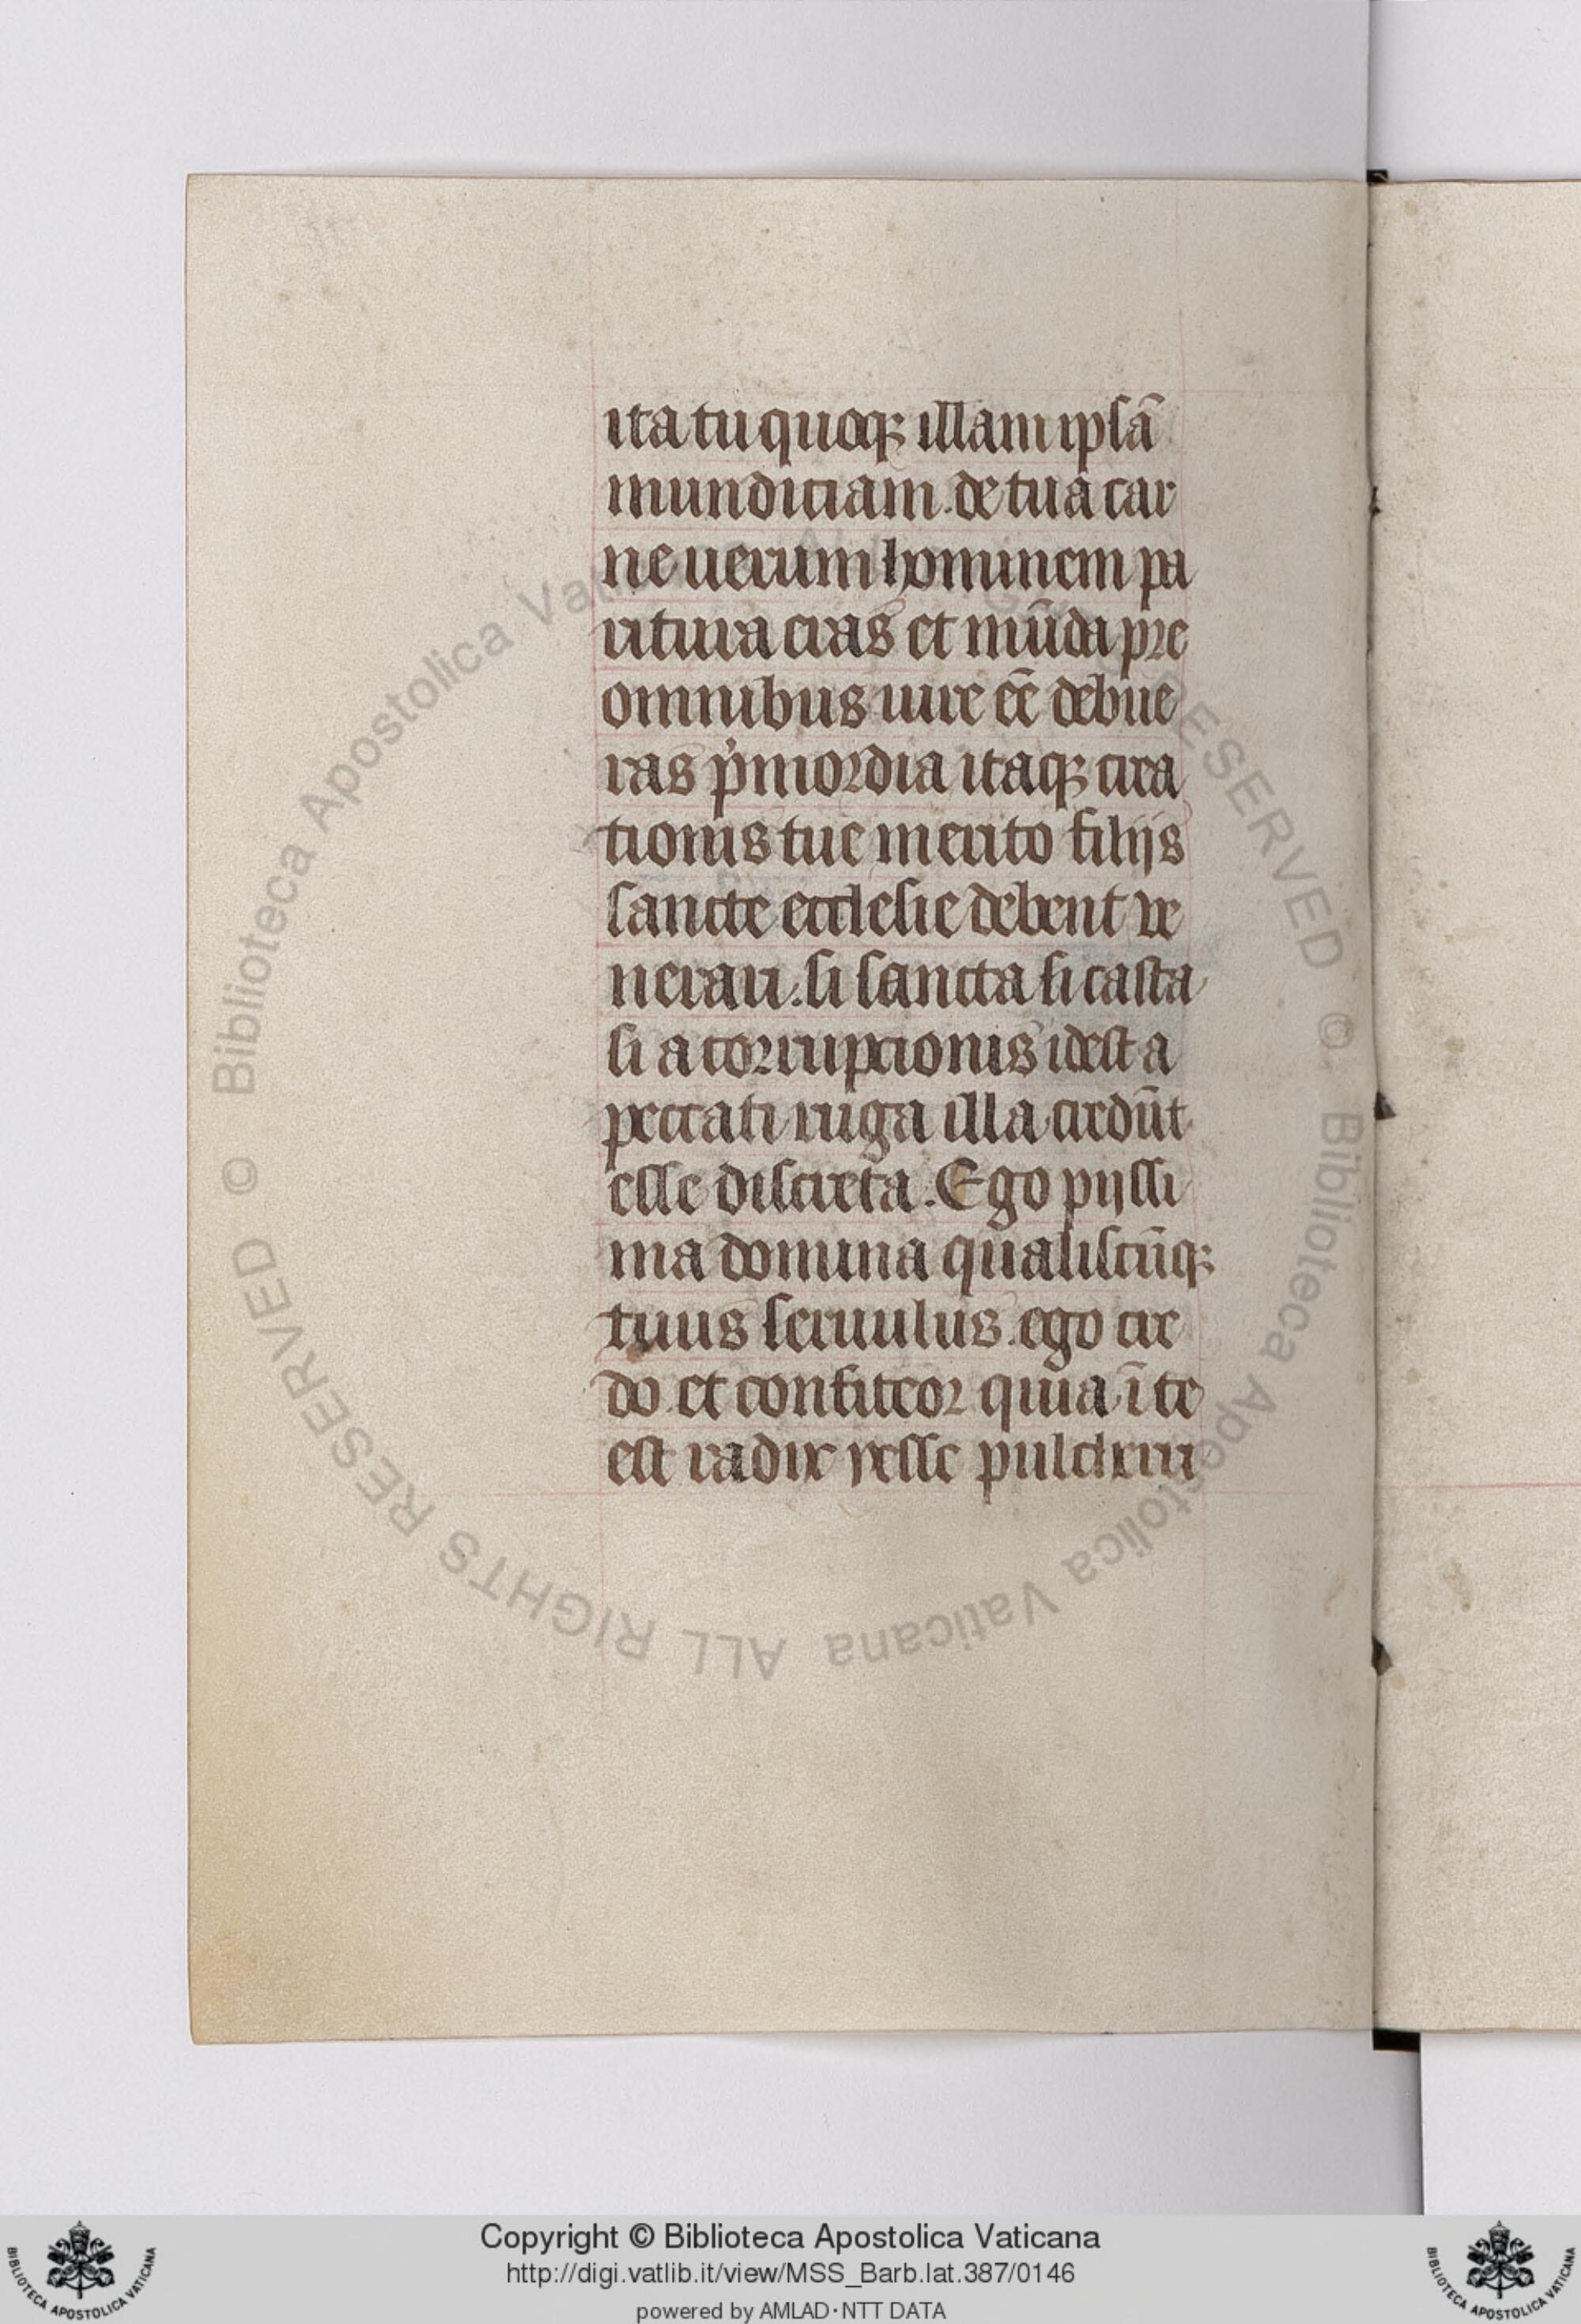 ita tu quoqꝫ illam ipsā
mundiciam. de tua car
ne uerum hominem pa
ritura eras et mūda pre
omnibus iure eē debue
ras pͥmordia itaqꝫ crea
tionis tue merito filijs
sancte ecclesie debent ve
nerari. si sancta si casta
si a corrupcionis idest a
peccati ruga illa credūt
esse discreta. Ego pijssi
ma domina qualiscūqꝫ
tuus seruulus. ego cre
do et confiteor quia ī te
est radix yesse pulcherri
Copyright © Biblioteca Apostolica Vaticana
http://digi.vatlib.it/view/MSS_Barb.lat.387/0146
powered by AMLAD·NTT DATA
BIBLIOTECA APOSTOLICA VATICANA
BIBLIOTECA APOSTOLICA VATICANA
© Biblioteca Apostolica Vaticana ALL RIGHTS RESERVED © Biblioteca Apostolica Vaticana ALL RIGHTS RESERVED